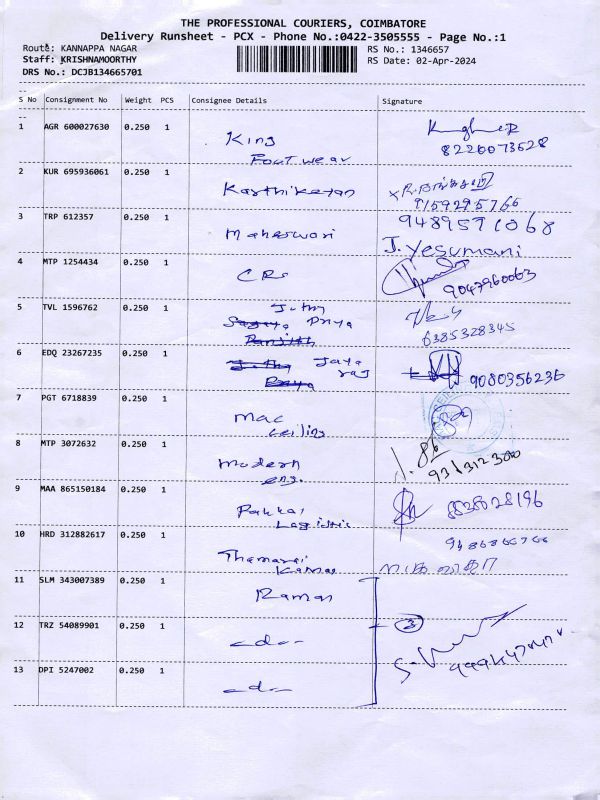 THE PROFESSIONAL COURIERS, COIMBATORE
Delivery Runsheet - PCX - Phone No.:0422-3505555 - Page No.:1
Route: KANNAPPA NAGAR RS No.: 1346657
Staff: KRISHNAMOORTHY RS Date: 02-Apr-2024
DRS No.: DCJB134665701
S No Consignment No Weight PCS Consignee Details Signature
1 AGR 600027630 0.250 1 King
Foot wear 8220073528
2 KUR 695936061 0.250 1 Karthikeyan
9159295766
3 TRP 612357 0.250 1 Maheswari 9489591068
J. Yesumani
4 MTP 1254434 0.250 1 9047960063
5 TVL 1596762 0.250 1 Priya
6385328345
6 EDQ 23267235 0.250 1 Jaya
raj 9080356236
7 PGT 6718839 0.250 1 Mac
Ceiling
8 MTP 3072632 0.250 1 Modern
eng.
9 MAA 865150184 0.250 1
10 HRD 312882617 0.250 1 Thamarai
11 SLM 343007389 0.250 1 Raman
12 TRZ 54089901 0.250 1 -do- 3
13 DPI 5247002 0.250 1 -do-